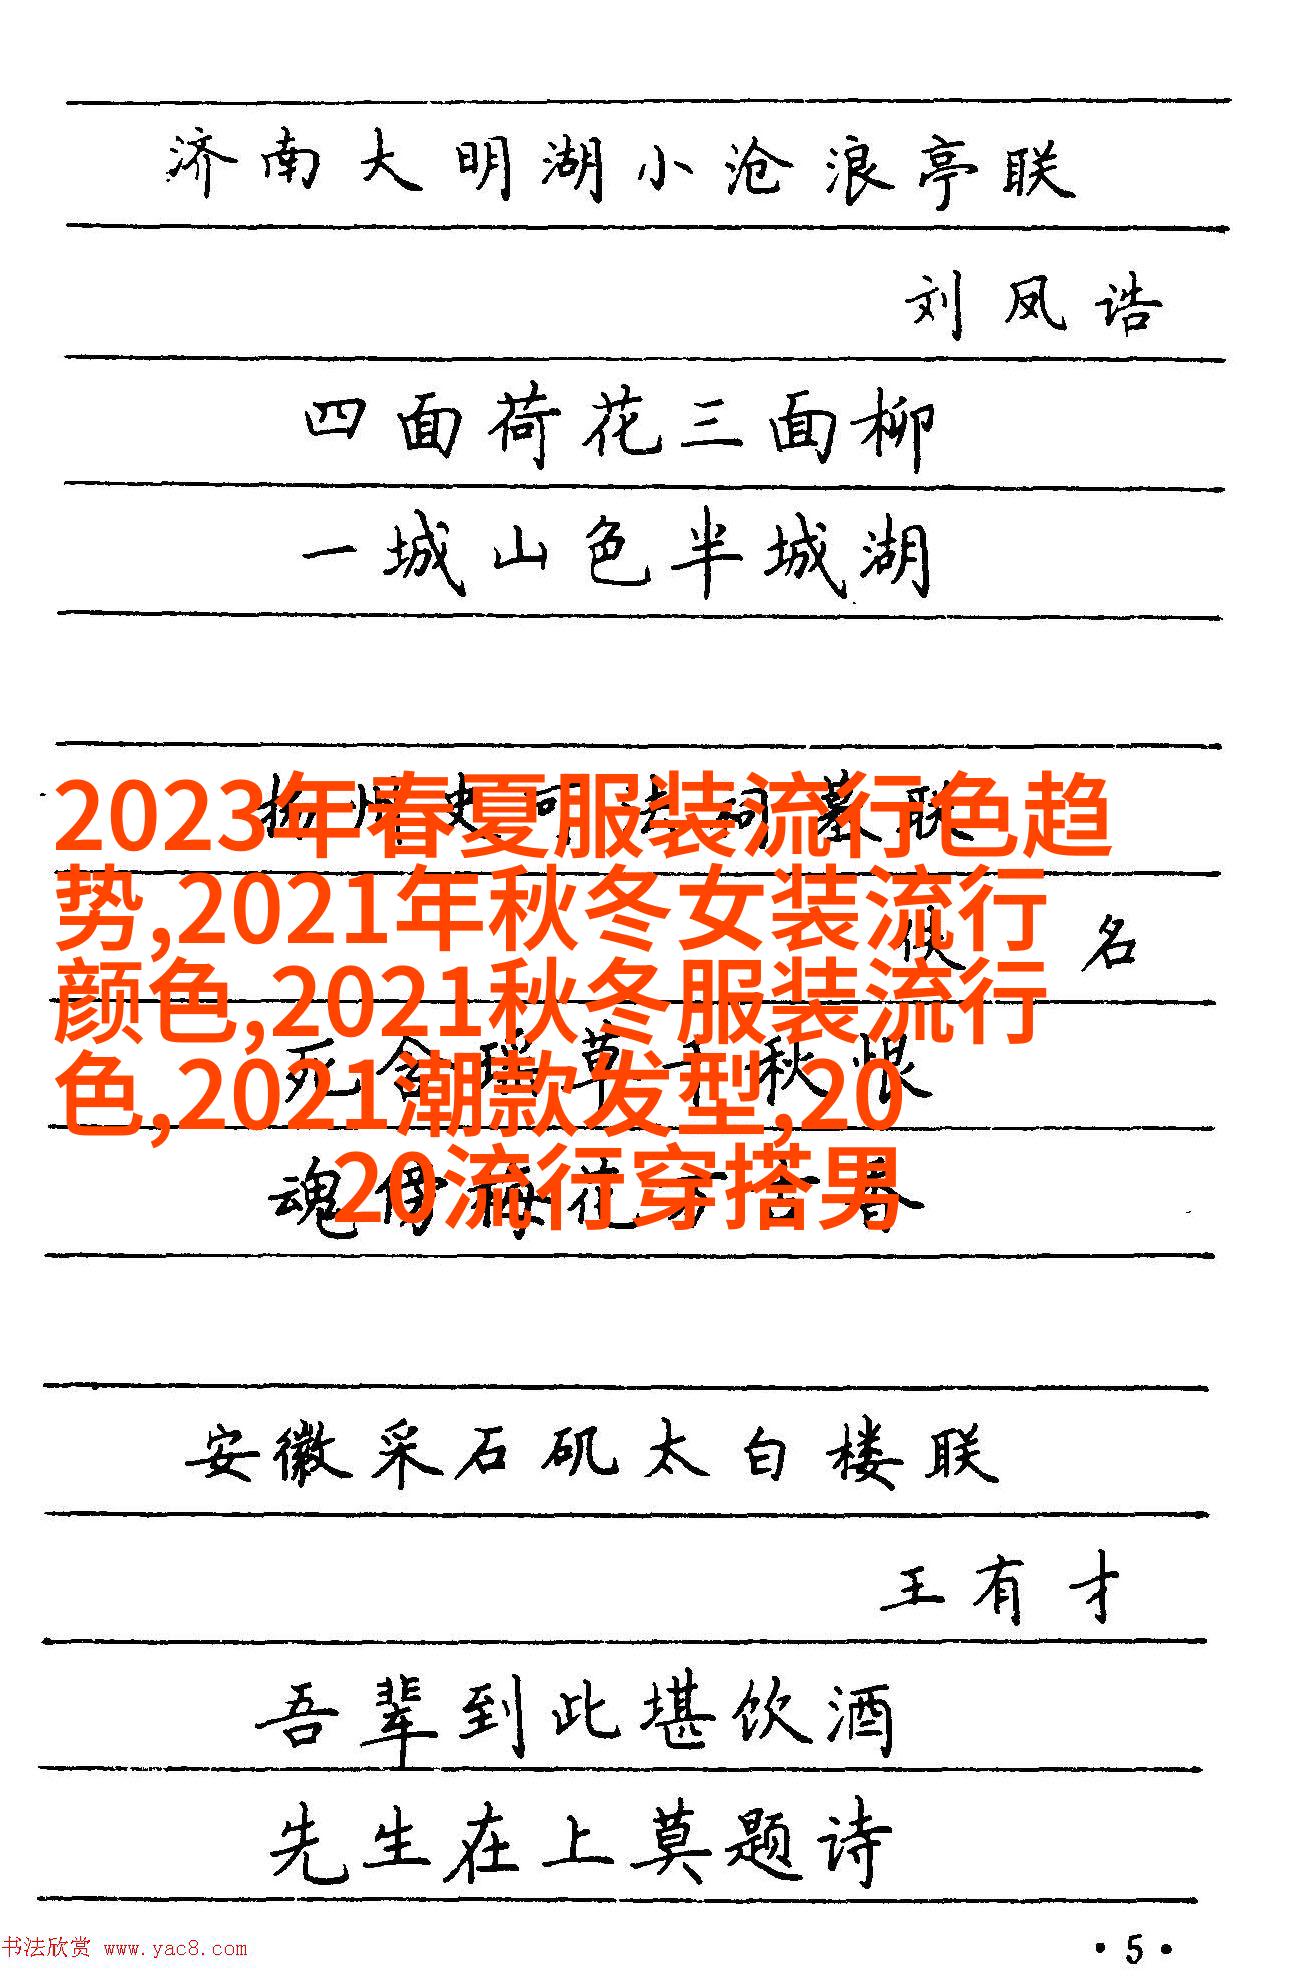 济南大明湖小沧浪亭联
刘凤诰
四面荷花三面柳
一城山色半城湖
2023年春夏服装流行色趋
势,2021年秋冬女装流行
颜色,2021秋冬服装流行
色,2021潮款发型,20
20流行穿搭男
联
佚名
死 草 秋恨
魂傍梅花 春
安徽采石矶太白楼联
王有才
吾辈到此堪饮酒
先生在上莫题诗
书法欣赏 www.yac8.com
·5·